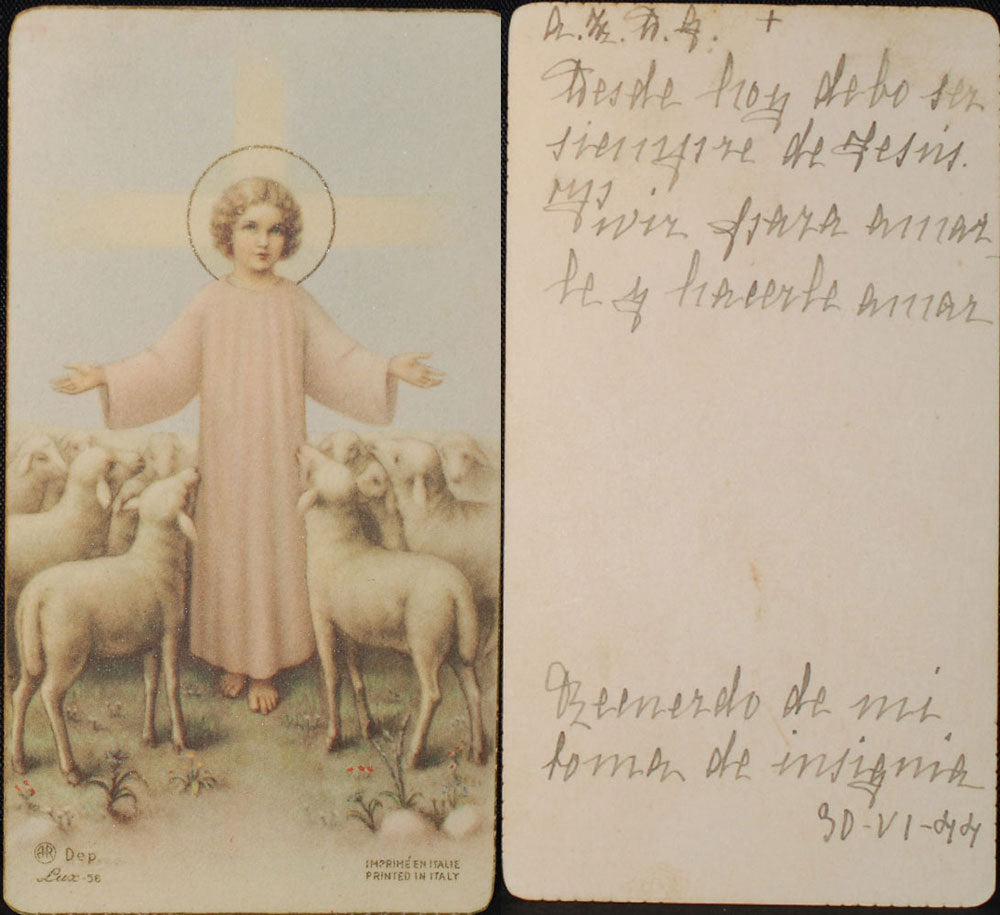 AR Dep.
Lux-56
IMPRIMÉ EN ITALIE
PRINTED IN ITALY
+
Desde hoy debo ser
siempre de Jesús.
Vivir para amar
le y hacerle amar
Recuerdo de mi
toma de insignia
30-VI-44